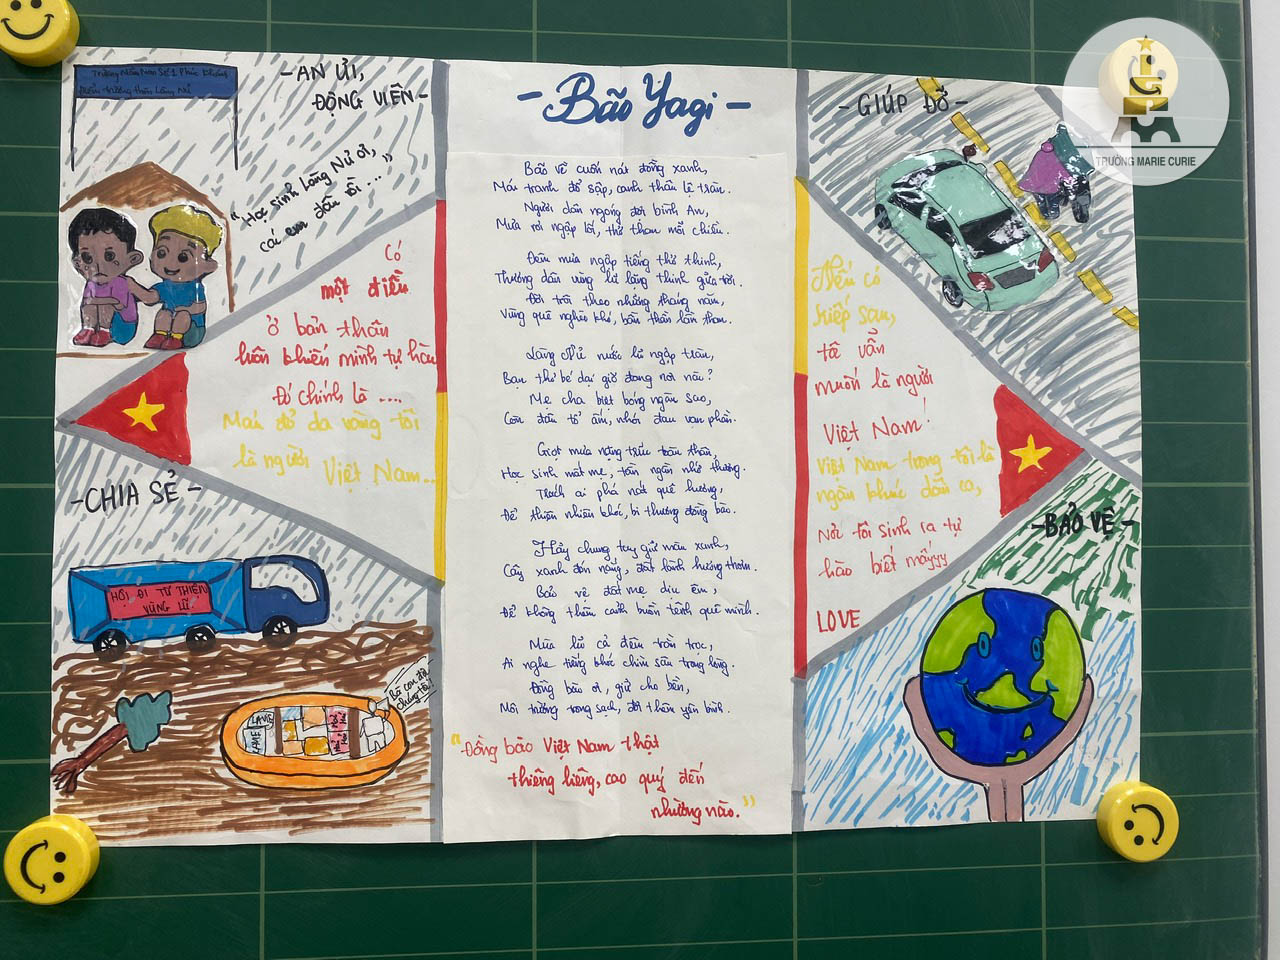 Trường Mầm Non Số 1 Phúc Khánh
Điểm trường thôn Làng Nủ
- AN ỦI,
ĐỘNG VIÊN -
"Học sinh Làng Nủ ơi,
các em đâu rồi ..."
Có
một điều
ở bản thân
luôn khiến mình tự hào
Đó chính là ....
Máu đỏ da vàng tôi
là người Việt Nam...
- CHIA SẺ -
HỘI ĐI TỪ THIỆN
VÙNG LŨ
Bà con đợi
chúng tôi!
- Bão Yagi -
Bão về cuốn nát đồng xanh,
Mái tranh đổ sập, canh thâu lệ tràn.
Người dân ngóng đợi bình An,
Mưa rơi ngập lối, thở than mỗi chiều.
Đêm mưa ngập tiếng thở
Thương dân vùng lũ lặng thinh giữa trời.
Đời trôi theo những tháng năm,
Vùng quê nghèo khó, bần thần lầm than.
Làng Nủ nước lũ ngập tràn,
Bạn thơ bé dại giờ đang nơi nào?
Mẹ cha biệt bóng ngàn sao,
Còn đâu tổ ấm, nhói đau vạn phần.
Giọt mưa nặng trĩu toàn thân,
Học sinh mất mẹ, tần ngần nhớ thương.
Trách ai phá nát quê hương,
Để thiên nhiên khóc, bi thương đồng bào.
Hãy chung tay giữ màu xanh,
Cây xanh đón nắng, đất lành hương thơm.
Bảo vệ đất mẹ dịu êm,
Để không thấm cảnh buồn tênh quê mình.
Mùa lũ cả đêm trằn trọc,
Ai nghe tiếng khóc chìm sâu trong lòng.
Đồng bào ơi, giữ cho bền,
Môi trường trong sạch, đời thêm yên bình.
"Đồng bào Việt Nam thật
thiêng liêng, cao quý đến
nhường nào."
- GIÚP ĐỠ -
TRƯỜNG MARIE CURIE
Nếu có
kiếp sau,
tôi vẫn
muốn là người
Việt Nam!
Việt Nam trong tôi là
ngàn khúc dân ca,
Nơi tôi sinh ra tự
hào biết mấyyy
LOVE
- BẢO VỆ -